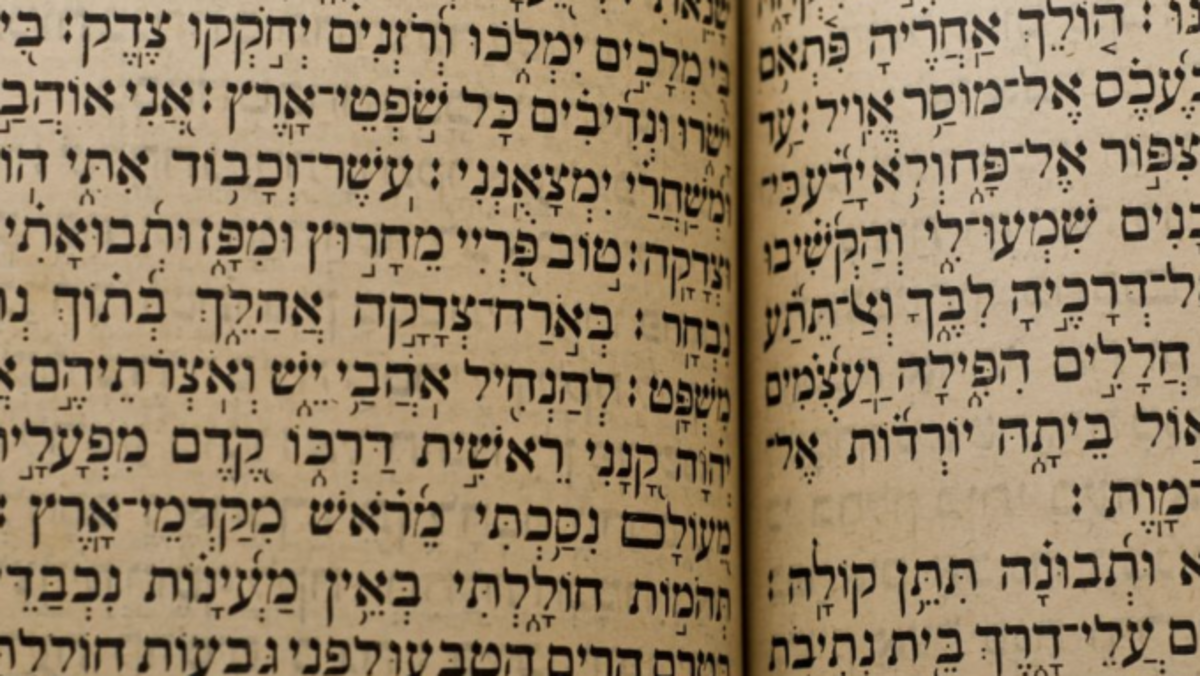 הוֹלֵךְ אַחֲרֶיהָ פִּתְאֹם
אֶל־מוּסַר אֱוִיל: עַד
צִפּוֹר אֶל־פָּח וְלֹא יָדַע כִּי־
בָנִים שִׁמְעוּ־לִי וְהַקְשִׁיבוּ
ל־דְּרָכֶיהָ לִבֶּךָ וְאַל־תֵּתַע
חֲלָלִים הִפִּילָה וַעֲצֻמִים
אוֹל בֵּיתָהּ יוֹרְדוֹת אֶל־
־מָוֶת:
וּתְבוּנָה תִּתֵּן קוֹלָהּ:
ם עֲלֵי־דָרֶךְ בֵּית נְתִיבֹת
בִּי מְלָכִים יִמְלֹכוּ וְרֹזְנִים יְחֹקְקוּ צֶדֶק: בִּי
יָשֹׂרוּ וּנְדִיבִים כָּל שֹׁפְטֵי־אָרֶץ: אֲנִי אוֹהֲבַ
וּמְשַׁחֲרַי יִמְצָאֻנְנִי: עֹשֶׁר־וְכָבוֹד אִתִּי הוֹ
וּצְדָקָה: טוֹב פִּרְיִי מֵחָרוּץ וּמִפָּז וּתְבוּאָתִי
נִבְחָר: בְּאֹרַח־צְדָקָה אֲהַלֵּךְ בְּתוֹךְ נְתִ
מִשְׁפָּט: לְהַנְחִיל אֹהֲבַי יֵשׁ וְאֹצְרֹתֵיהֶם אֲ
יְהוָה קָנָנִי רֵאשִׁית דַּרְכּוֹ קֶדֶם מִפְעָלָי
מֵעוֹלָם נִסַּכְתִּי מֵרֹאשׁ מִקַּדְמֵי־אָרֶץ:
תְּהֹמוֹת חוֹלָלְתִּי בְּאֵין מַעְיָנוֹת נִכְבַּדֵּי
בְּטֶרֶם הָרִים הָטְבָּעוּ לִפְנֵי גְבָעוֹת חוֹלָלְתּ